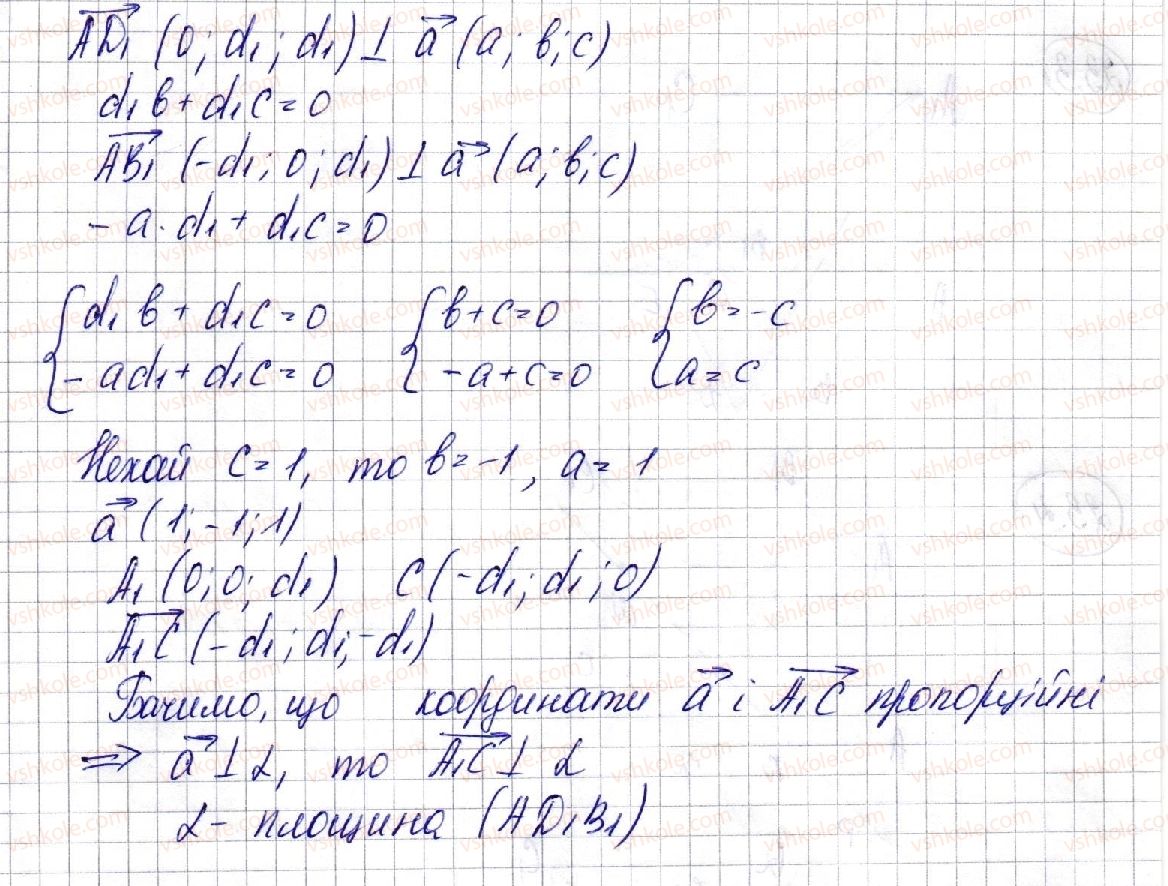 $\overrightarrow{AD_1}$ (0; d₁; d₁) ⊥ $\vec{a}$ (a; b; c)
d₁b + d₁c = 0
$\overrightarrow{AB_1}$ (-d₁; 0; d₁) ⊥ $\vec{a}$ (a; b; c)
-a·d₁ + d₁c = 0
{d₁b + d₁c = 0 {b + c = 0 {b = -c
-ad₁ + d₁c = 0 -a + c = 0 a = c
Нехай c = 1, то b = -1, a = 1
$\vec{a}$ (1; -1; 1)
A₁ (0; 0; d₁) C (-d₁; d₁; 0)
$\overrightarrow{A_1C}$ (-d₁; d₁; -d₁)
Бачимо, що координати $\vec{a}$ і $\overrightarrow{A_1C}$ пропорційні
⇒ $\vec{a}$ ⊥ α, то $\overrightarrow{A_1C}$ ⊥ α
α - площина (AD₁B₁)
vshkole.com